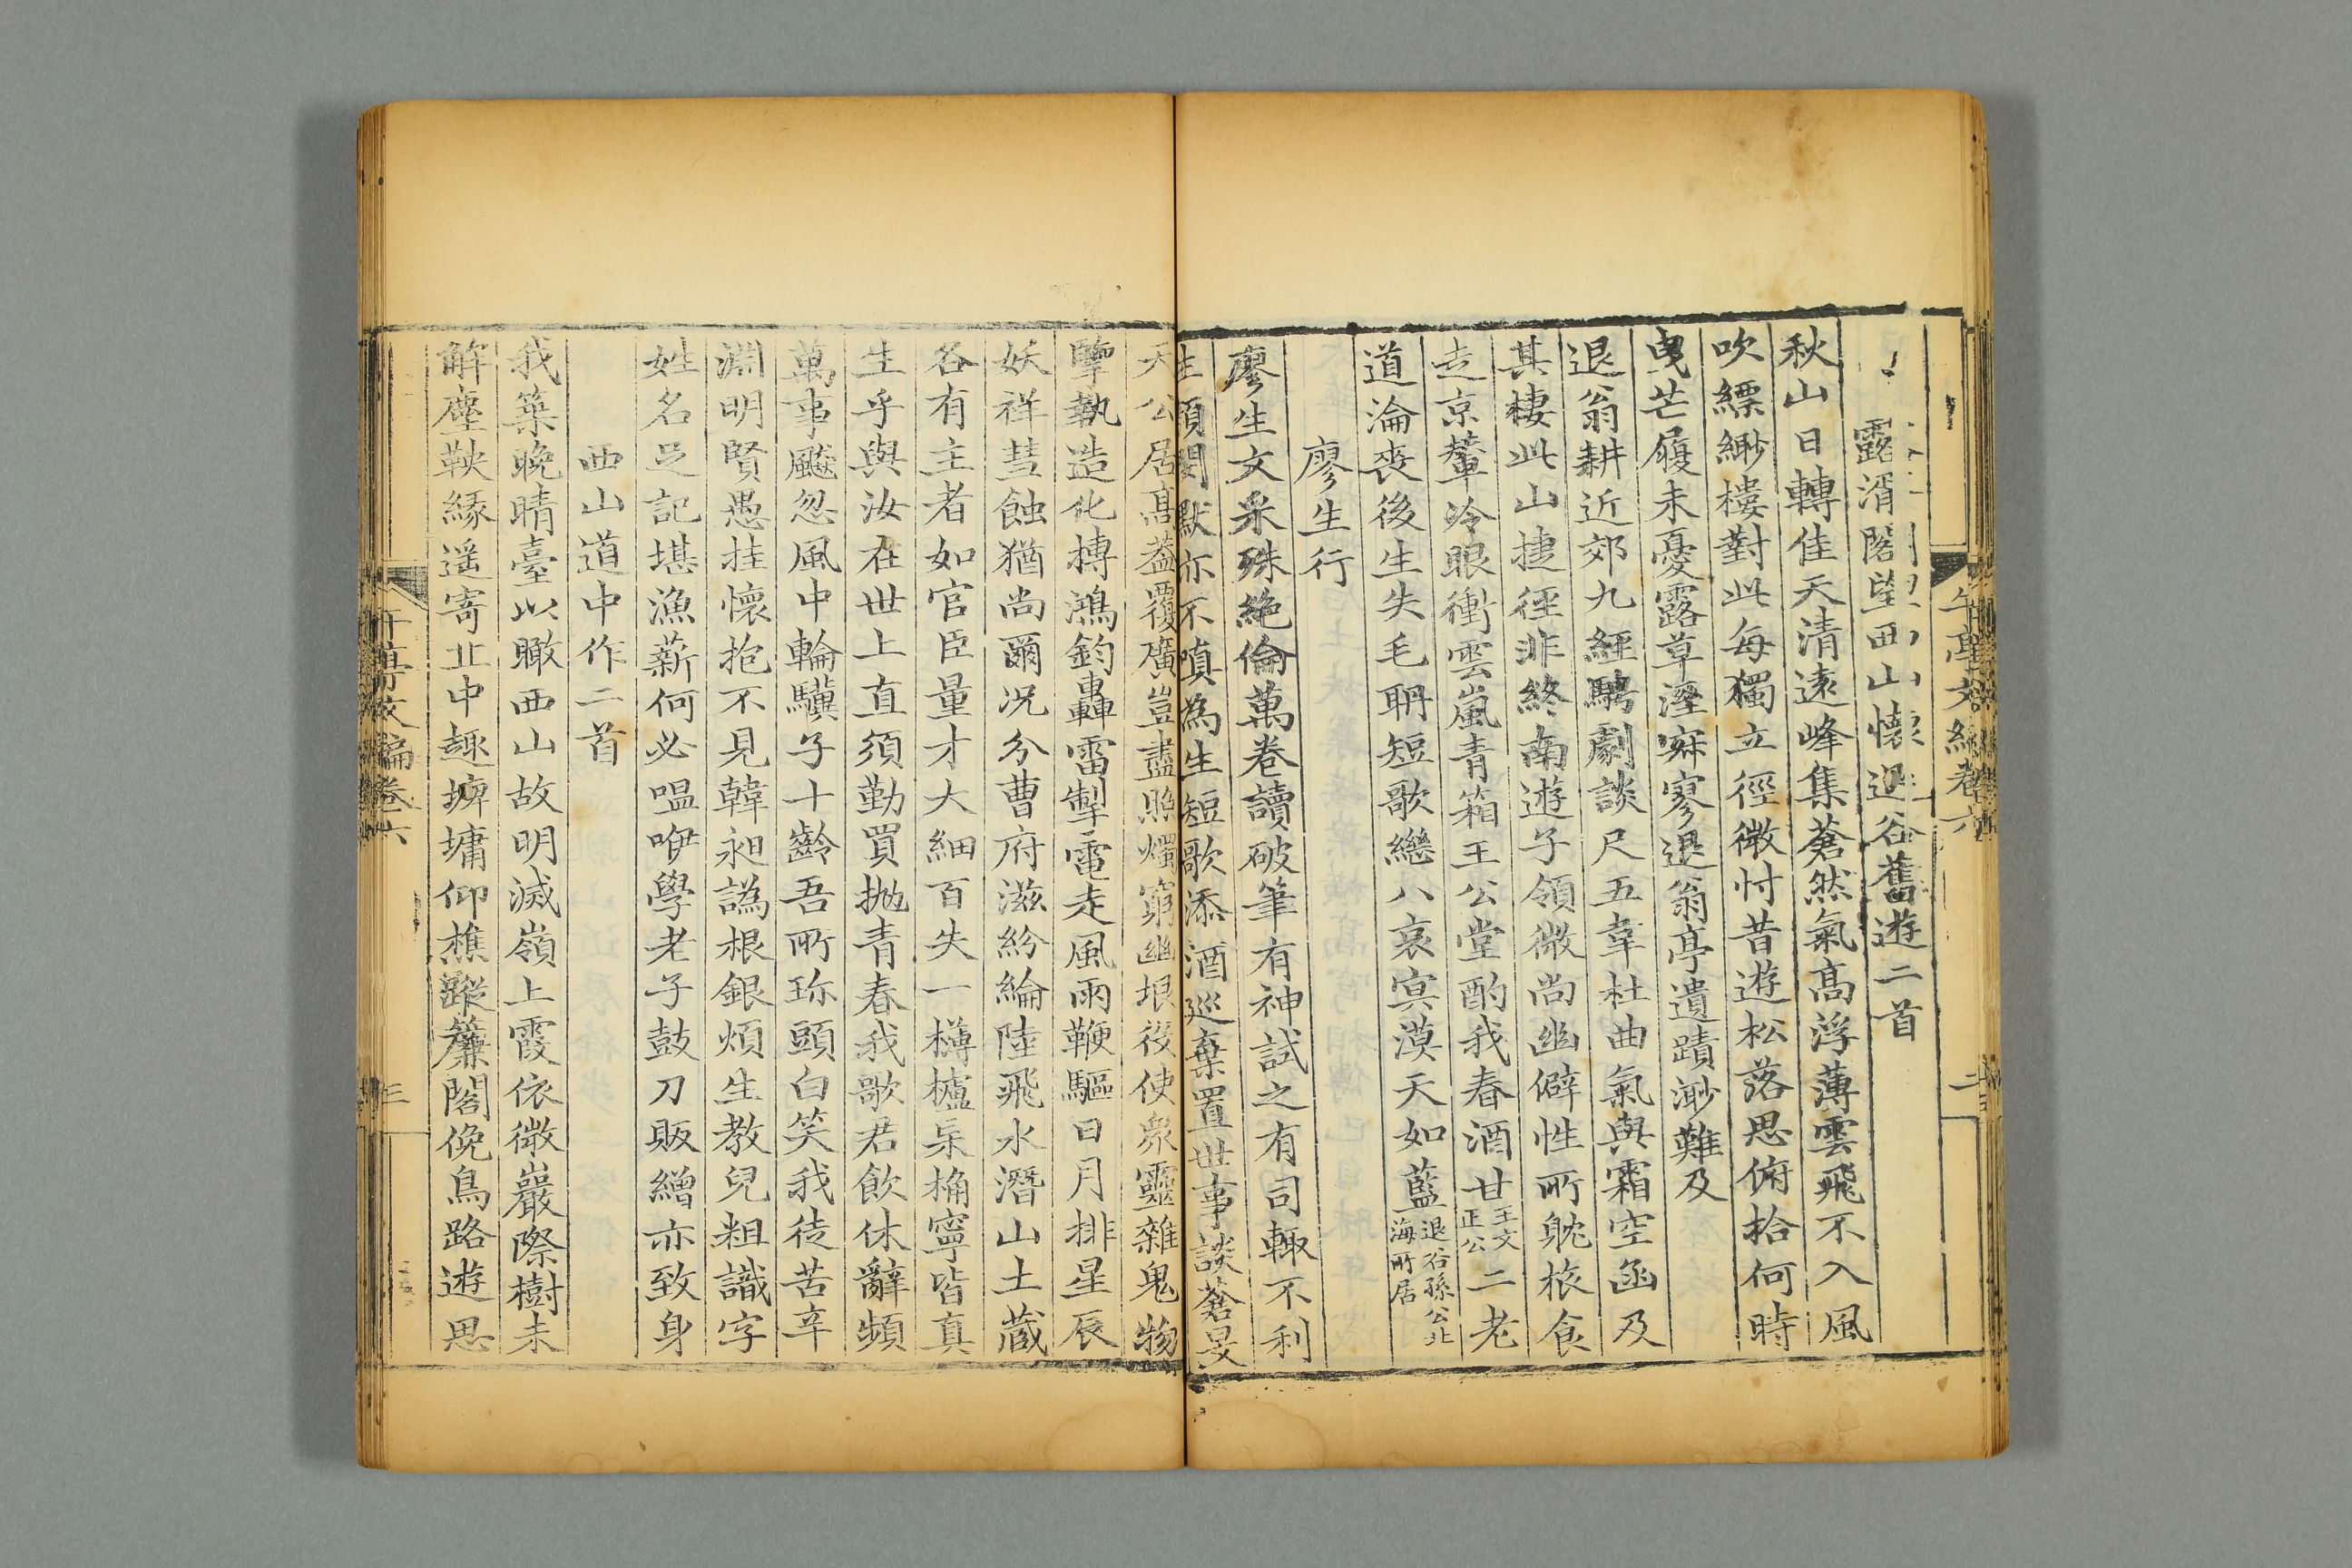 午亭文編卷六
二
露湑閣望西山懷退谷舊遊二首
秋山日轉佳天清遠峰集蒼然氣高浮薄雲飛不入風
吹縹緲樓對此每獨立徑微忖昔遊松落思俯拾何時
曳芒履未憂露草溼寂寥退翁亭遺蹟渺難及
退翁耕近郊九經騁劇談尺五韋杜曲氣與霜空函及
其棲此山捷徑非終南遊子領微尚幽僻性所躭旅食
走京輦冷眼衝雲嵐青箱王公堂酌我春酒甘王文正公二老
道淪喪後生失毛聃短歌繼八哀冥漠天如藍退谷孫公北海所居
廖生行
廖生文采殊絶倫萬卷讀破筆有神試之有司輙不利
生傾聞默亦不嗔為生短歌添酒巡棄置世事談蒼旻
天公居高葢覆廣豈盡照燭窮幽垠役使衆靈雜鬼物
孼執造化摶鴻鈞轟雷掣電走風雨鞭驅日月排星辰
妖祥彗蝕猶尚爾况分曹府滋紛綸陸飛水潛山土藏
各有主者如官臣量才大細百失一欂櫨杗桷寧皆真
生乎與汝在世上直須勤買抛青春我歌君飲休辭頻
萬事飈忽風中輪驥子十齡吾所珎頭白笑我徒苦辛
淵明賢愚挂懷抱不見韓昶譌根銀煩生教兒粗識字
姓名足記堪漁薪何必嗢咿學老子鼓刀販繒亦致身
西山道中作二首
我築晚晴臺以瞰西山故明滅嶺上霞依微巖際樹未
解塵鞅縁遥寄丘中趣埤墉仰樵蹤簾閣俛鳥路遊思
午亭文編卷六
三